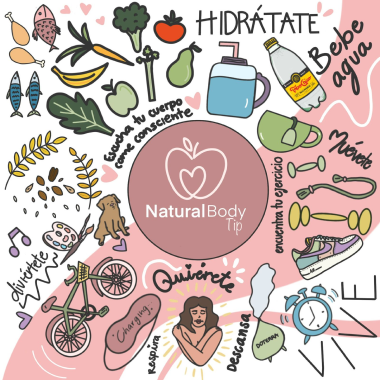 HIDRÁTATE
Bebe
agua
Escucha tu cuerpo
come consciente
Muévete
encuentra tu ejercicio
NaturalBody
Tip
diviértete
Quiérete
Charging
respira
Descansa
DOTERRA
VIVE